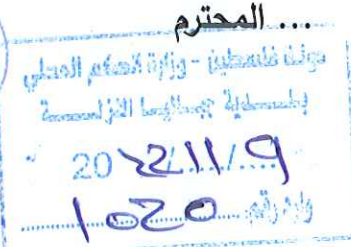 ... المحترم
دولة فلسطين - وزارة الحكم المحلي
بلدية جباليا النزلة
2022/11/9
وارد رقم 1020